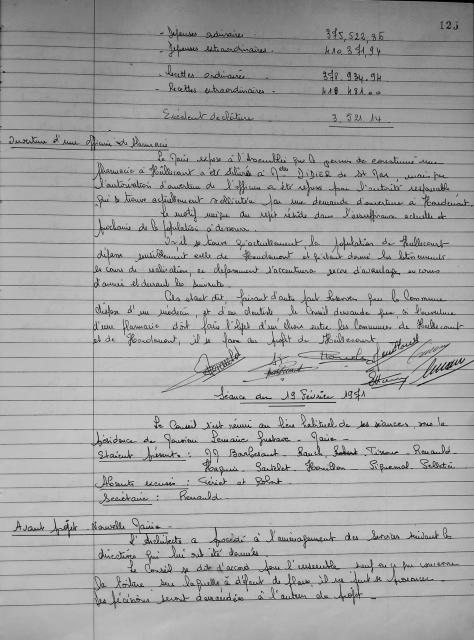 123
- Dépenses ordinaires. 375,522,85
- Dépenses extraordinaires. 410,371,94
- Recettes ordinaires. 378.934.94
- Recettes extraordinaires. 410 481.00
Excédent de clôture 3.521.14
Ouverture d'une officine de Pharmacie
Le Maire expose à l'Assemblée que le permis de construire une
pharmacie à Heillecourt a été délivré à Melle DIDIER de St Max, mais que
l'autorisation d'ouverture de l'officine a été refusée par l'autorité responsable
qui se trouve actuellement par une demande d'ouverture à Houdemont.
Le motif unique du rejet réside dans l'insuffisance actuelle et
prochaine de la population à desservir.
Or il se trouve qu'actuellement la population de Heillecourt
dépasse sensiblement celle de Houdemont et qu'étant donné les lotissements
en cours de réalisation, ce dépassement s'accentuera encore d'avantage en cours
d'année et durant les suivantes.
Ceci étant dit, faisant d'autre part observer que la Commune
dispose d'un médecin, et d'un dentiste le Conseil demande que si l'ouverture
d'une Pharmacie doit faire l'objet d'un choix entre les Communes de Heillecourt
et de Houdemont, il se fasse au profit de Heillecourt.
Séance du 19 Février 1971
Le Conseil s'est réuni au lieu habituel de ses séances sous la
présidence de Monsieur Lemaire Gustave - Maire -
Etaient présents : MM Barbesant Rauch Robert Renauld
Absents excusés : et Robert
Secrétaire : Renauld -
Avant projet - Nouvelle Mairie -
L'Architecte a procédé à l'aménagement des Services suivant les
directives qui lui ont été données.
Le Conseil se dit d'accord pour l'ensemble sauf en ce qui concerne
la toiture sur laquelle à défaut de plans, il ne peut se prononcer.
Des précisions seront demandées à l'auteur du projet -